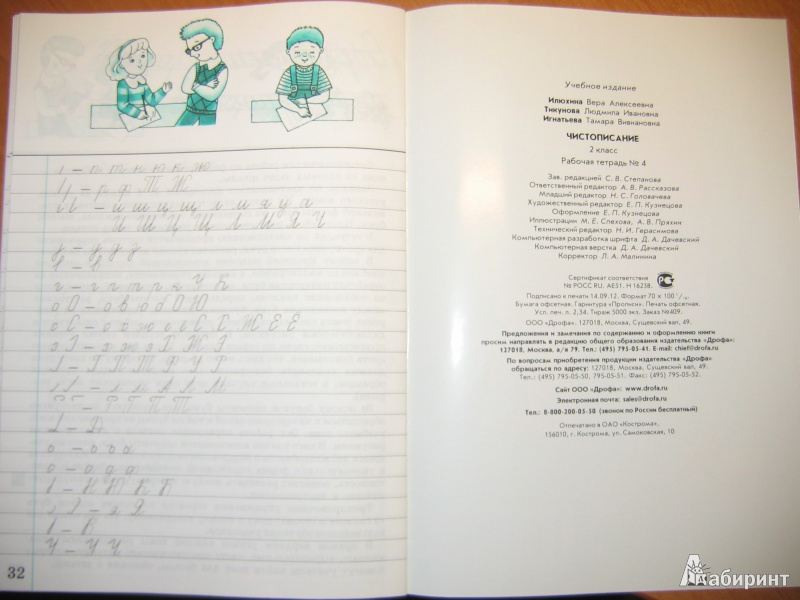 п т н ю к ж
р ф Т Ж
и ш и щ ц л м я ц а
И Ш Ц Щ Л М Я Ч
у д з
в
г т р к У К
о О – о в ю б О Ю
С С Ж Е Ё
Г П Т Р У Г
л м А Л М
Р Г П Т
Д
о а
Н Ю К Б
Я
В
У – У Ч
32
Учебное издание
Илюхина Вера Алексеевна
Тикунова Людмила Ивановна
Игнатьева Тамара Вивиановна
ЧИСТОПИСАНИЕ
2 класс
Рабочая тетрадь № 4
Зав. редакцией С. В. Степанова
Ответственный редактор А. В. Рассказова
Младший редактор Н. С. Головачева
Художественный редактор Е. П. Кузнецова
Оформление Е. П. Кузнецова
Иллюстрации М. Е. Спехова, А. В. Пряхин
Технический редактор Н. И. Герасимова
Компьютерная разработка шрифта Д. А. Дачевский
Компьютерная верстка Д. А. Дачевский
Корректор Л. А. Малинина
Сертификат соответствия
№ РОСС RU. АЕ51. Н 16238.
Подписано к печати 14.09.12. Формат 70 х 100 1/16.
Бумага офсетная. Гарнитура «Прописи». Печать офсетная.
Усл. печ. л. 2,34. Тираж 5000 экз. Заказ №409.
ООО «Дрофа». 127018, Москва, Сущевский вал, 49.
Предложения и замечания по содержанию и оформлению книги
просим направлять в редакцию общего образования издательства «Дрофа»:
127018, Москва, а/я 79. Тел.: (495) 795-05-41. E-mail: chief@drofa.ru
По вопросам приобретения продукции издательства «Дрофа»
обращаться по адресу: 127018, Москва, Сущевский вал, 49.
Тел.: (495) 795-05-50, 795-05-51. Факс: (495) 795-05-52.
Сайт ООО «Дрофа»: www.drofa.ru
Электронная почта: sales@drofa.ru
Тел.: 8-800-200-05-50 (звонок по России бесплатный)
Отпечатано в ОАО «Кострома».
156010, г. Кострома, ул. Самоковская, 10.
Лабиринт